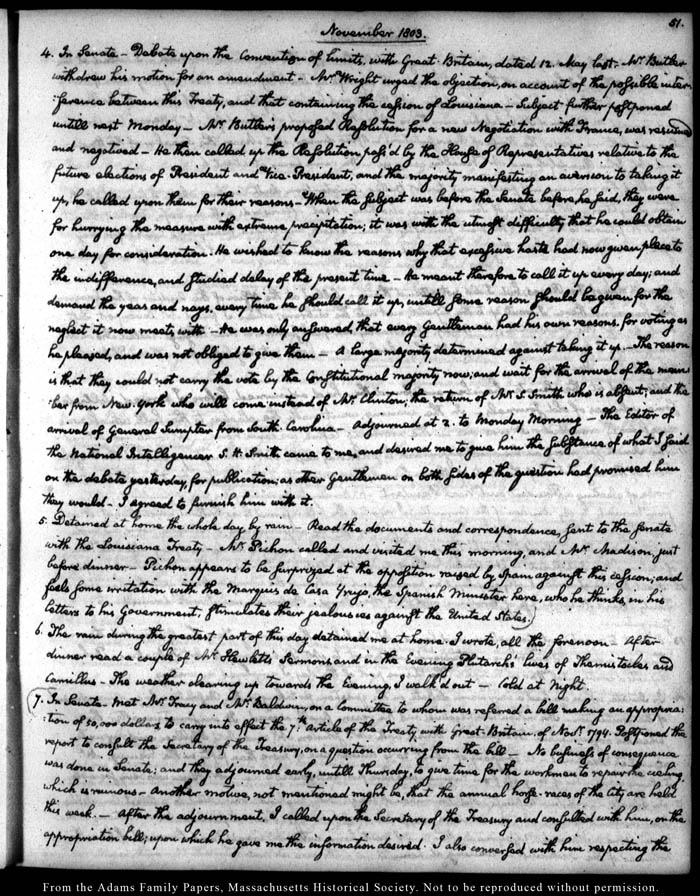 51.
November 1803.
4. In Senate — Debate upon the Convention of limits, with Great-Britain, dated 12. May last. Mr. Butler
withdrew his motion for an amendment — Mr. Wright urged the objection, on account of the possible inter-
:ference between this Treaty, and that containing the cession of Louisiana — Subject further postponed
untill next Monday — Mr. Butler's proposed Resolution for a new Negotiation with France, was resumed
and negatived — He then called up the Resolution pass'd by the House of Representatives relative to the
future elections of President and Vice-President, and the majority manifesting an aversion to taking it
up, he called upon them for their reasons — When the subject was before the Senate before he said, they were
for hurrying the measure with extreme precipitation; it was with the utmost difficulty that he could obtain
one day for consideration. He wished to know the reasons why that excessive haste had now given place to
the indifference, and studied delay of the present time — He meant therefore to call it up every day; and
demand the yeas and nays, every time he should call it up, untill some reason should be given for the
neglect it now meets with — He was only answered, that every Gentleman had his own reasons for voting as
he pleased, and was not obliged to give them — A large majority determined against taking it up. — The reason
is that they could not carry the vote by the Constitutional majority now; and wait for the arrival of the mem-
:ber from New-York who will come instead of Mr. Clinton, the return of Mr. S. Smith who is absent, and the
arrival of General Sumpter from South-Carolina — Adjourned at 2. to Monday Morning — The Editor of
the National Intelligencer S. H. Smith came to me, and desired me to give him the substance of what I said
on the debate yesterday, for publication; as other Gentlemen on both sides of the question had promised him
they would — I agreed to furnish him with it.
5. Detained at home the whole day, by rain — Read the documents and correspondence, sent to the Senate
with the Louisiana Treaty — Mr. Pichon called and visited me this morning, and Mr. Madison, just
before dinner — Pichon appears to be surprized at the opposition raised by Spain against this cession; and
feels some irritation with the Marquis de Casa Yrujo, the Spanish Minister here, who he thinks, in his
letters to his Government, stimulates their jealousies against the United States.
6. The rain during the greatest part of this day detained me at home. I wrote, all the forenoon — After
dinner read a couple of Mr. Hewlett's Sermons and in the Evening Plutarch's lives of Themistocles and
Camillus — The weather clearing up towards the Evening, I walk'd out — Cold at Night.
7. In Senate — Met Mr. Tracy and Mr. Baldwin, on a Committee to whom was referred a bill making an appropria-
:tion of 50,000 dollars to carry into effect the 7th. article of the Treaty, with Great Britain, of Novr. 1794. Postponed the
report to consult the Secretary of the Treasury, on a question occurring from the bill — No business of consequence
was done in Senate; and they adjourned early, untill Thursday, to give time for the workmen to repair the ceiling,
which is ruinous — Another motive, not mentioned might be, that the annual horse-races of the City are held
this week. — After the adjournment, I called upon the Secretary of the Treasury and consulted with him, on the
appropriation bill; upon which he gave me the information desired. I also conversed with him respecting the
From the Adams Family Papers, Massachusetts Historical Society. Not to be reproduced without permission.